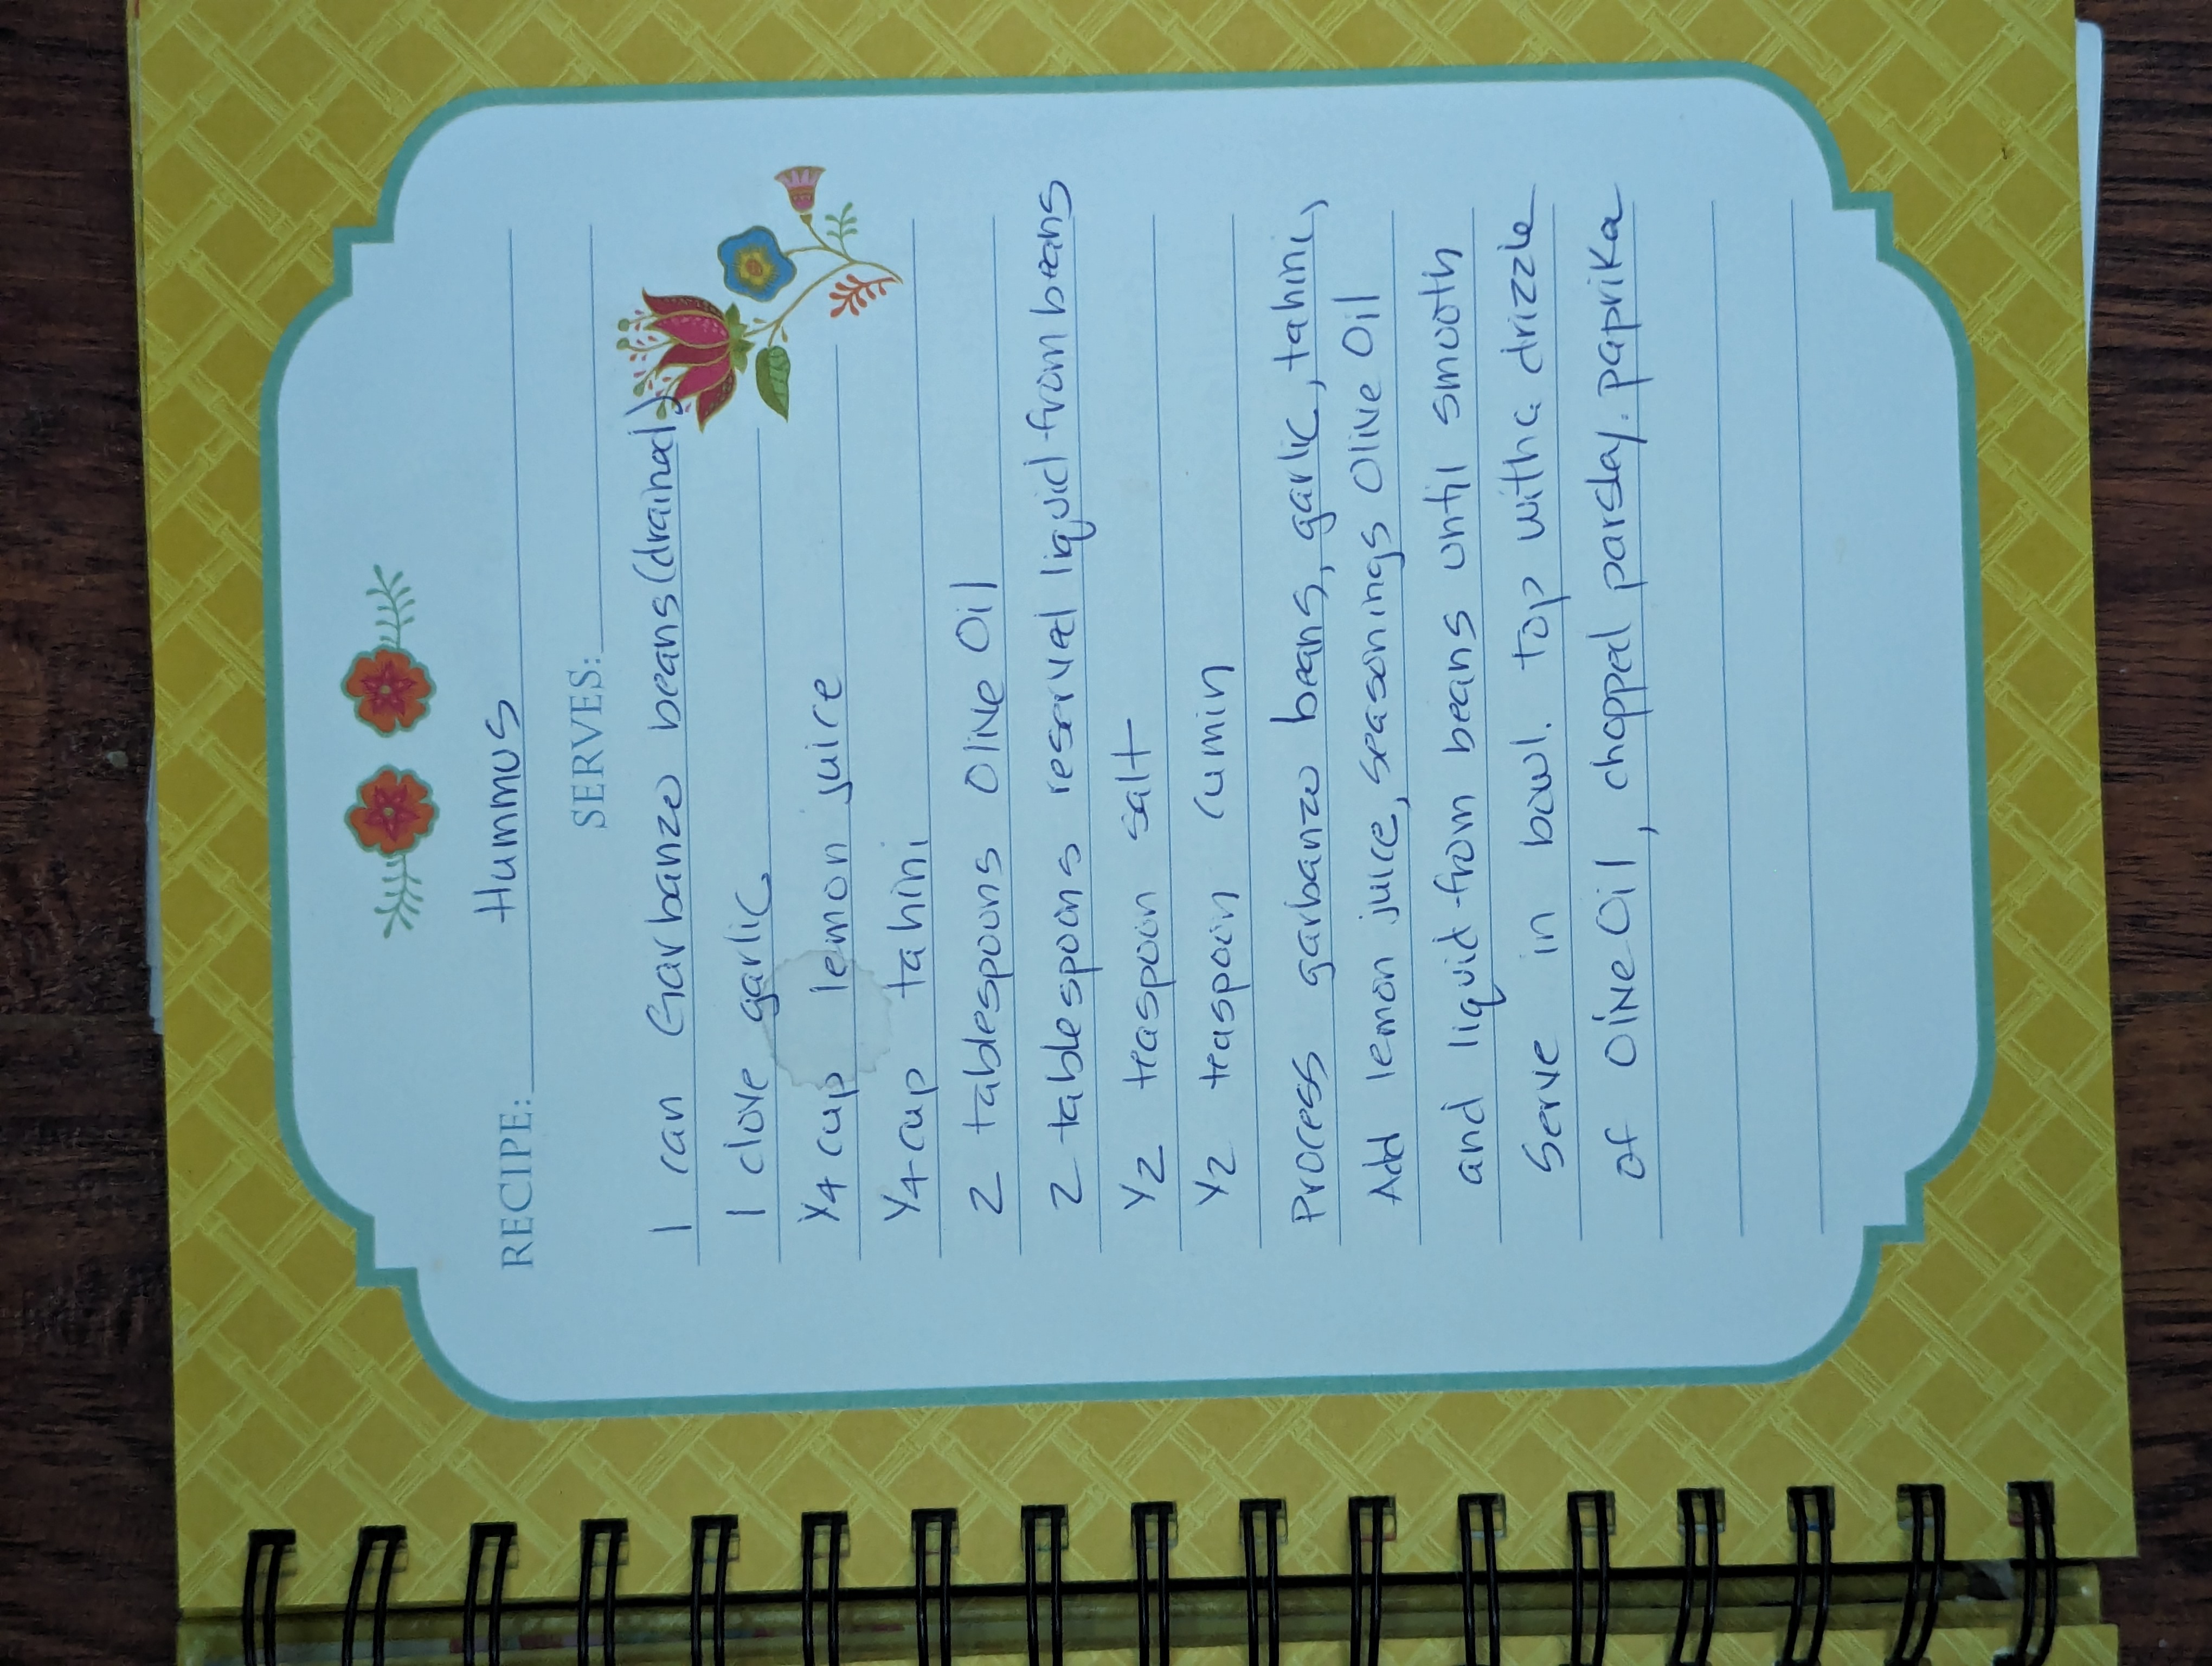 RECIPE: Hummus
SERVES:
1 can Garbanzo beans (drained)
1 clove garlic
1/4 cup lemon juice
1/4 cup tahini
2 tablespoons Olive Oil
2 tablespoons reserved liquid from beans
1/2 teaspoon salt
1/2 teaspoon cumin
Process garbanzo beans, garlic, tahini,
Add lemon juice, seasonings Olive Oil
and liquid from beans until smooth
Serve in bowl. Top with a drizzle
of Olive Oil, chopped parsley. paprika